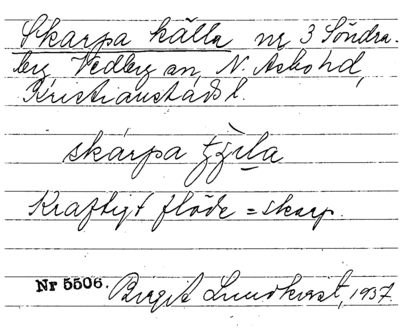 Skarpa källa nr 3 Söndra-
berg, Vedberg an, N. Åsbo hd,
Kristianstads l.
skárpa
Kraftigt flöde = skarp.
Nr 5506. Birgit Lundkvist, 1937.